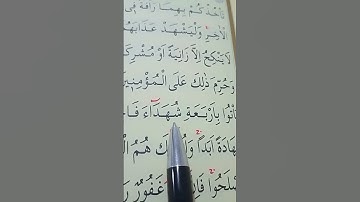 تَأْخُذْكُمْ بِهِمَا رَأْفَةٌ فِي
الْاٰخِرِ وَلْيَشْهَدْ عَذَابَهُمَ
لَا يَنْكِحُ اِلَّا زَانِيَةً اَوْ مُشْرِكَ
وَحُرِّمَ ذٰلِكَ عَلَى الْمُؤْمِنِي
يَأْتُوا بِاَرْبَعَةِ شُهَدَٓاءَ فَاجْ
هَادَةً اَبَدًا وَاُو۬لٰٓئِكَ هُمُ الْ
صْلَحُوا فَاِنَّ غَفُورٌ رَ